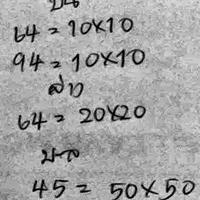 บน
64 = 10x10
94 = 10x10
ล่าง
64 = 20x20
บน
45 = 50x50